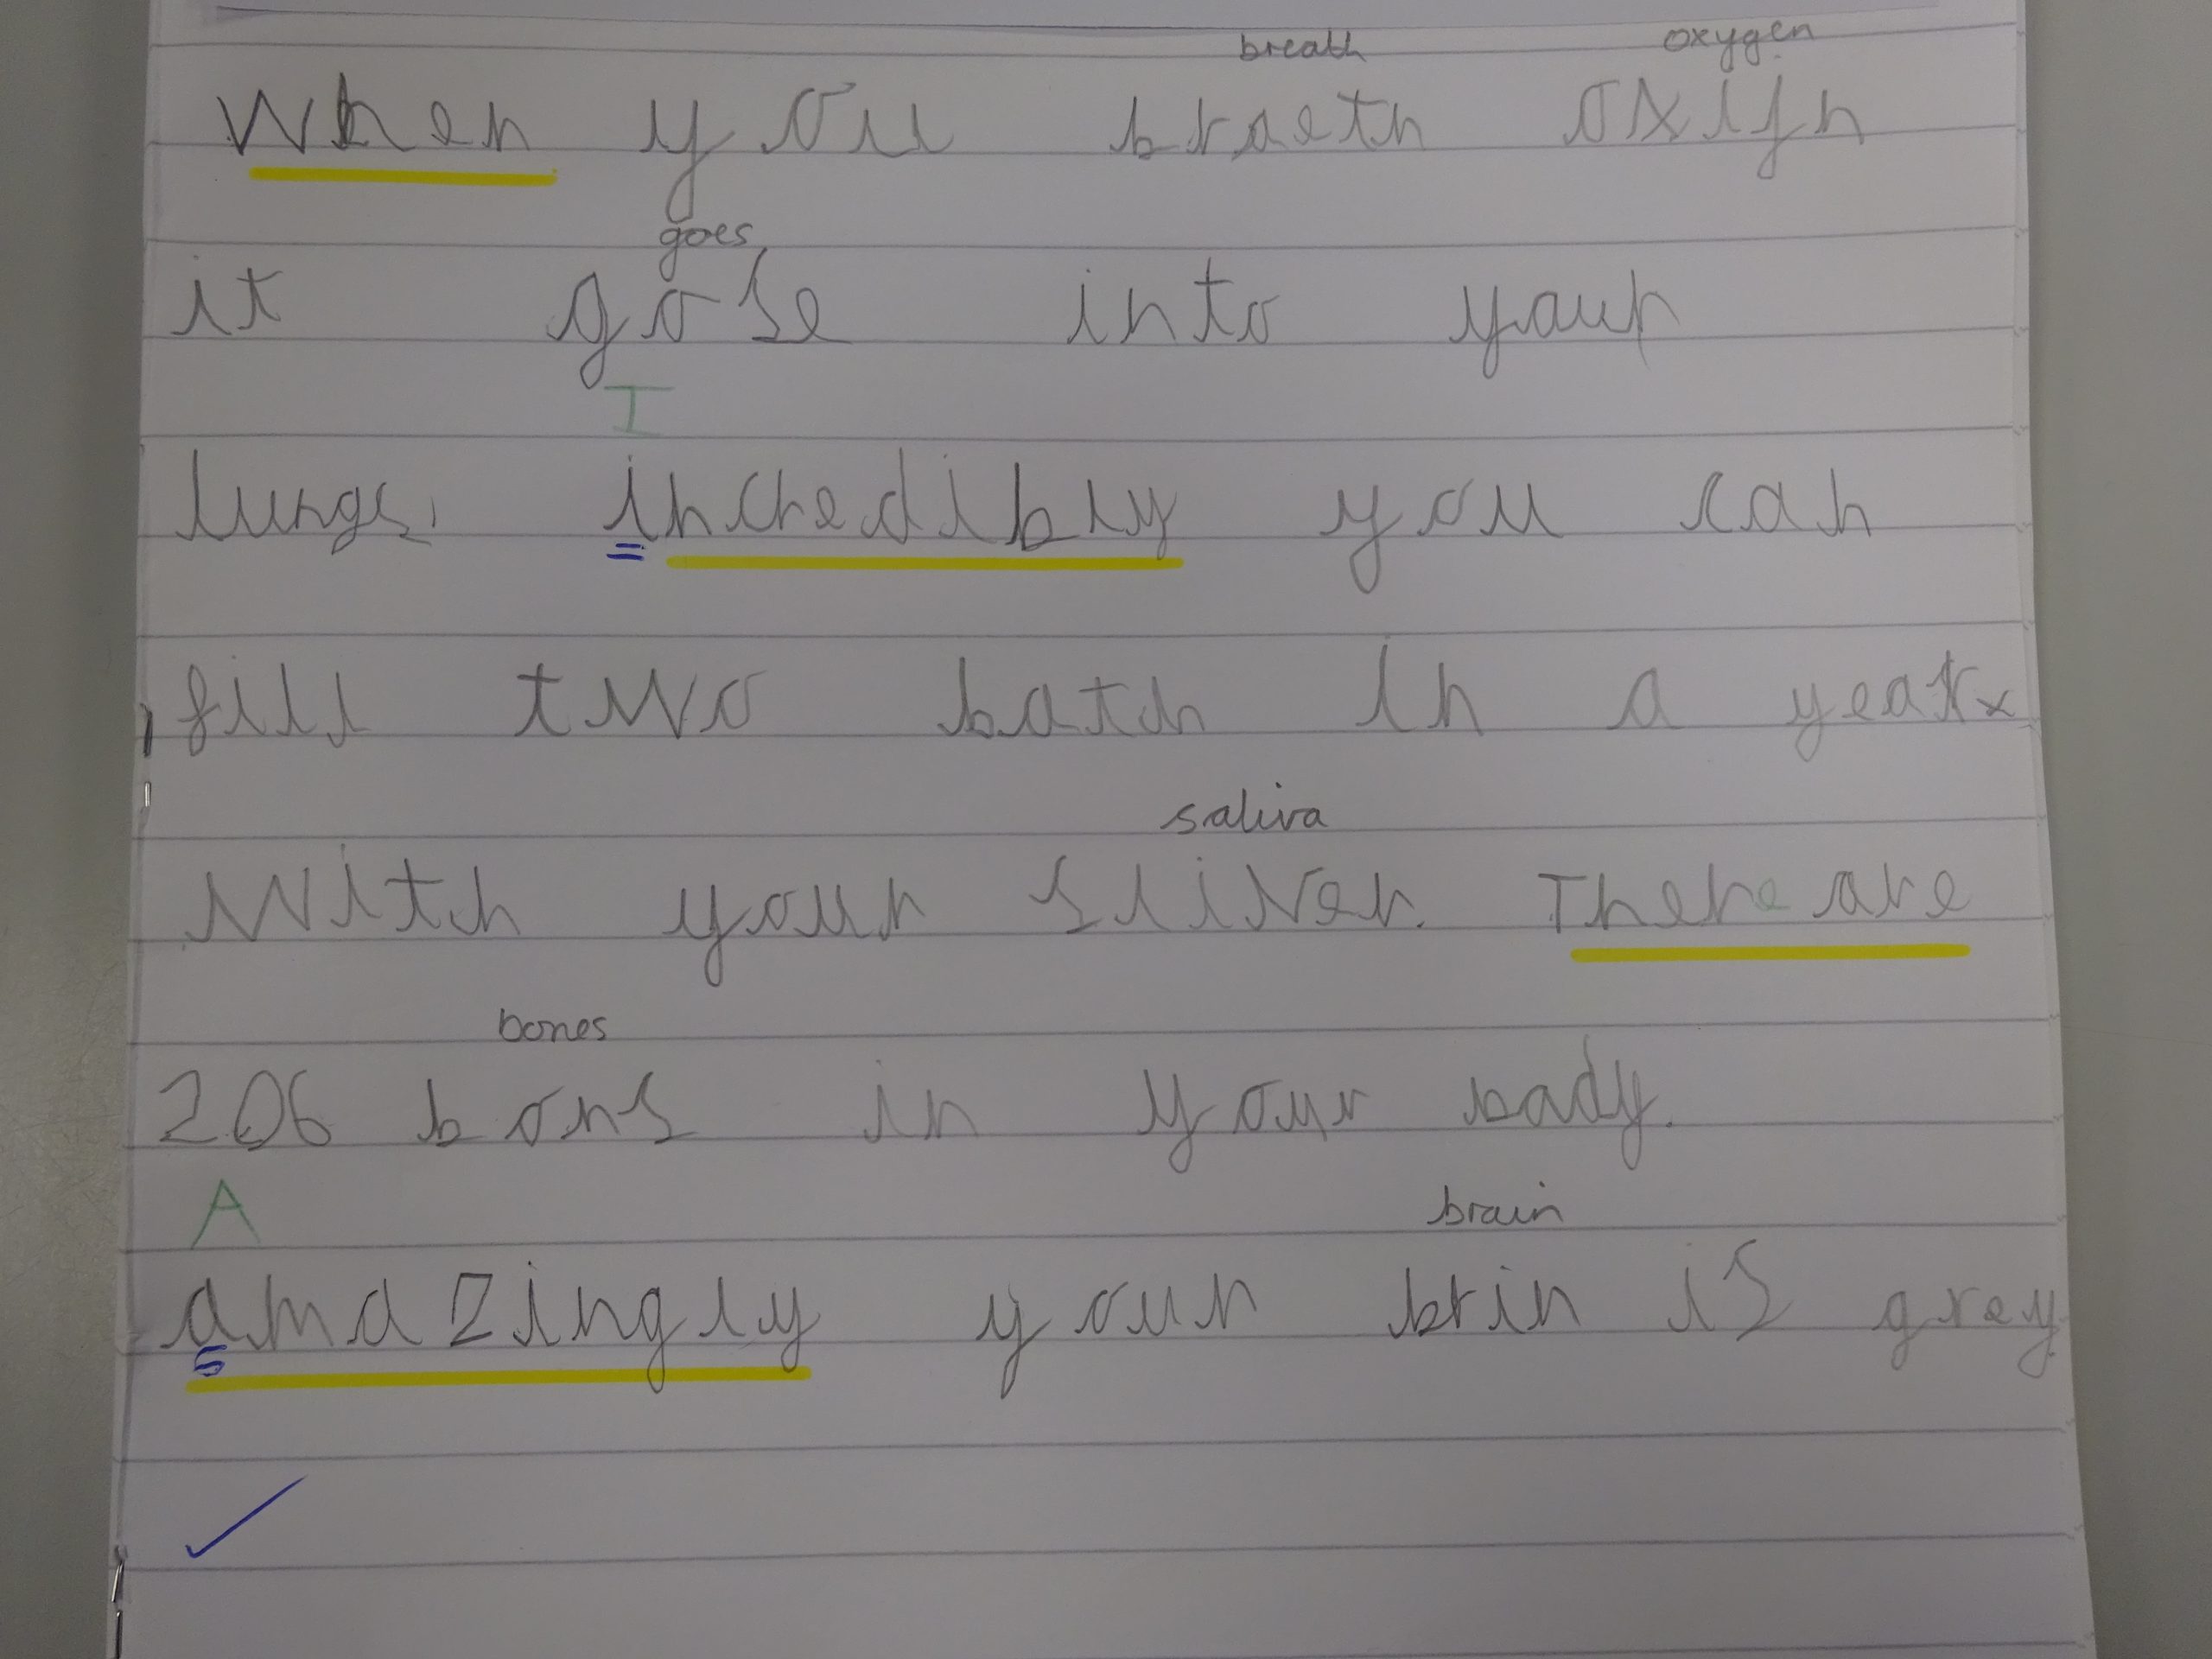 breath oxygen
When you braeth oxijn
goes
it gose into your
I
lungs. incredibly you can
fill two bath in a year
saliva
with your sliver. There are
bones
206 bons in your body.
A brain
amazingly your brin is grey.